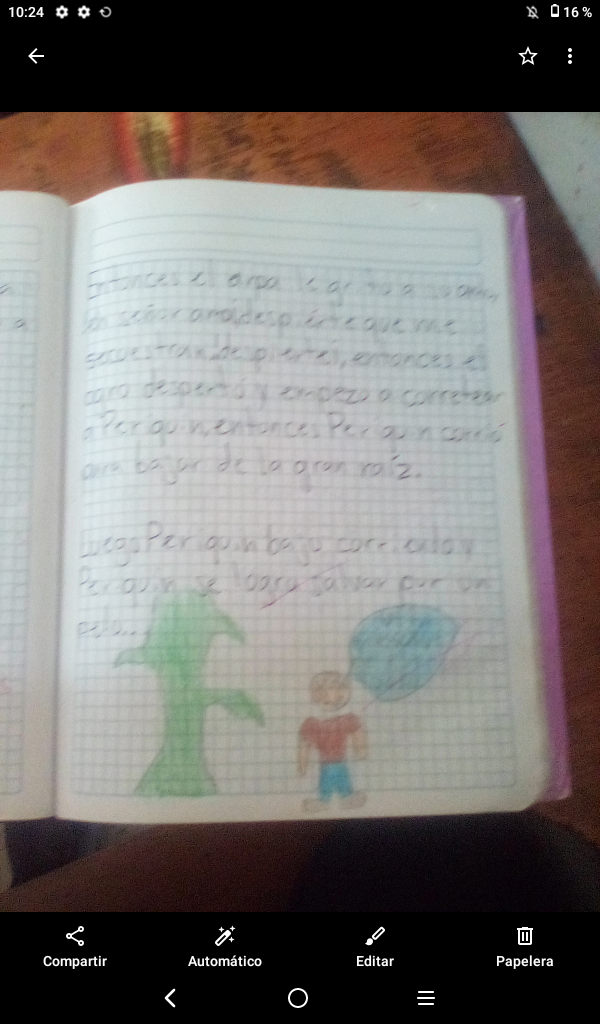 10:24
16 %
Entonces el arpa le grito a su amo,
señor amo despierte que me
secuestran despierte!, entonces el
ogro despertó y empezo a corretear
a Periquin, entonces Periquin corrió
para bajar de la gran raíz.
Luego Periquin bajo corriendo y
Periquin se logro salvar por un
pelo...
Compartir
Automático
Editar
Papelera